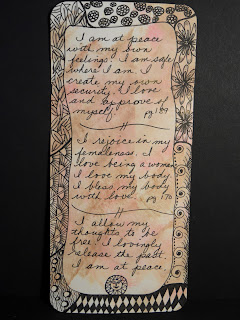 I am at peace
with my own
feelings. I am safe
where I am. I
create my own
security. I love
and approve of
myself. pg 189
I rejoice in my
femaleness. I
love being a woman
I love my body
I bless my body
with love. pg 170
I allow my
thoughts to be
free. I lovingly
release the past.
I am at peace